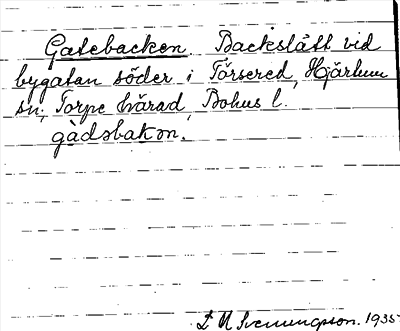 Gatebacken. Backslått vid
bygatan söder i Törsered, Hjärtum
sn, Torpe härad, Bohus l.
gàdsbakon.
D N Svenungsson. 1935